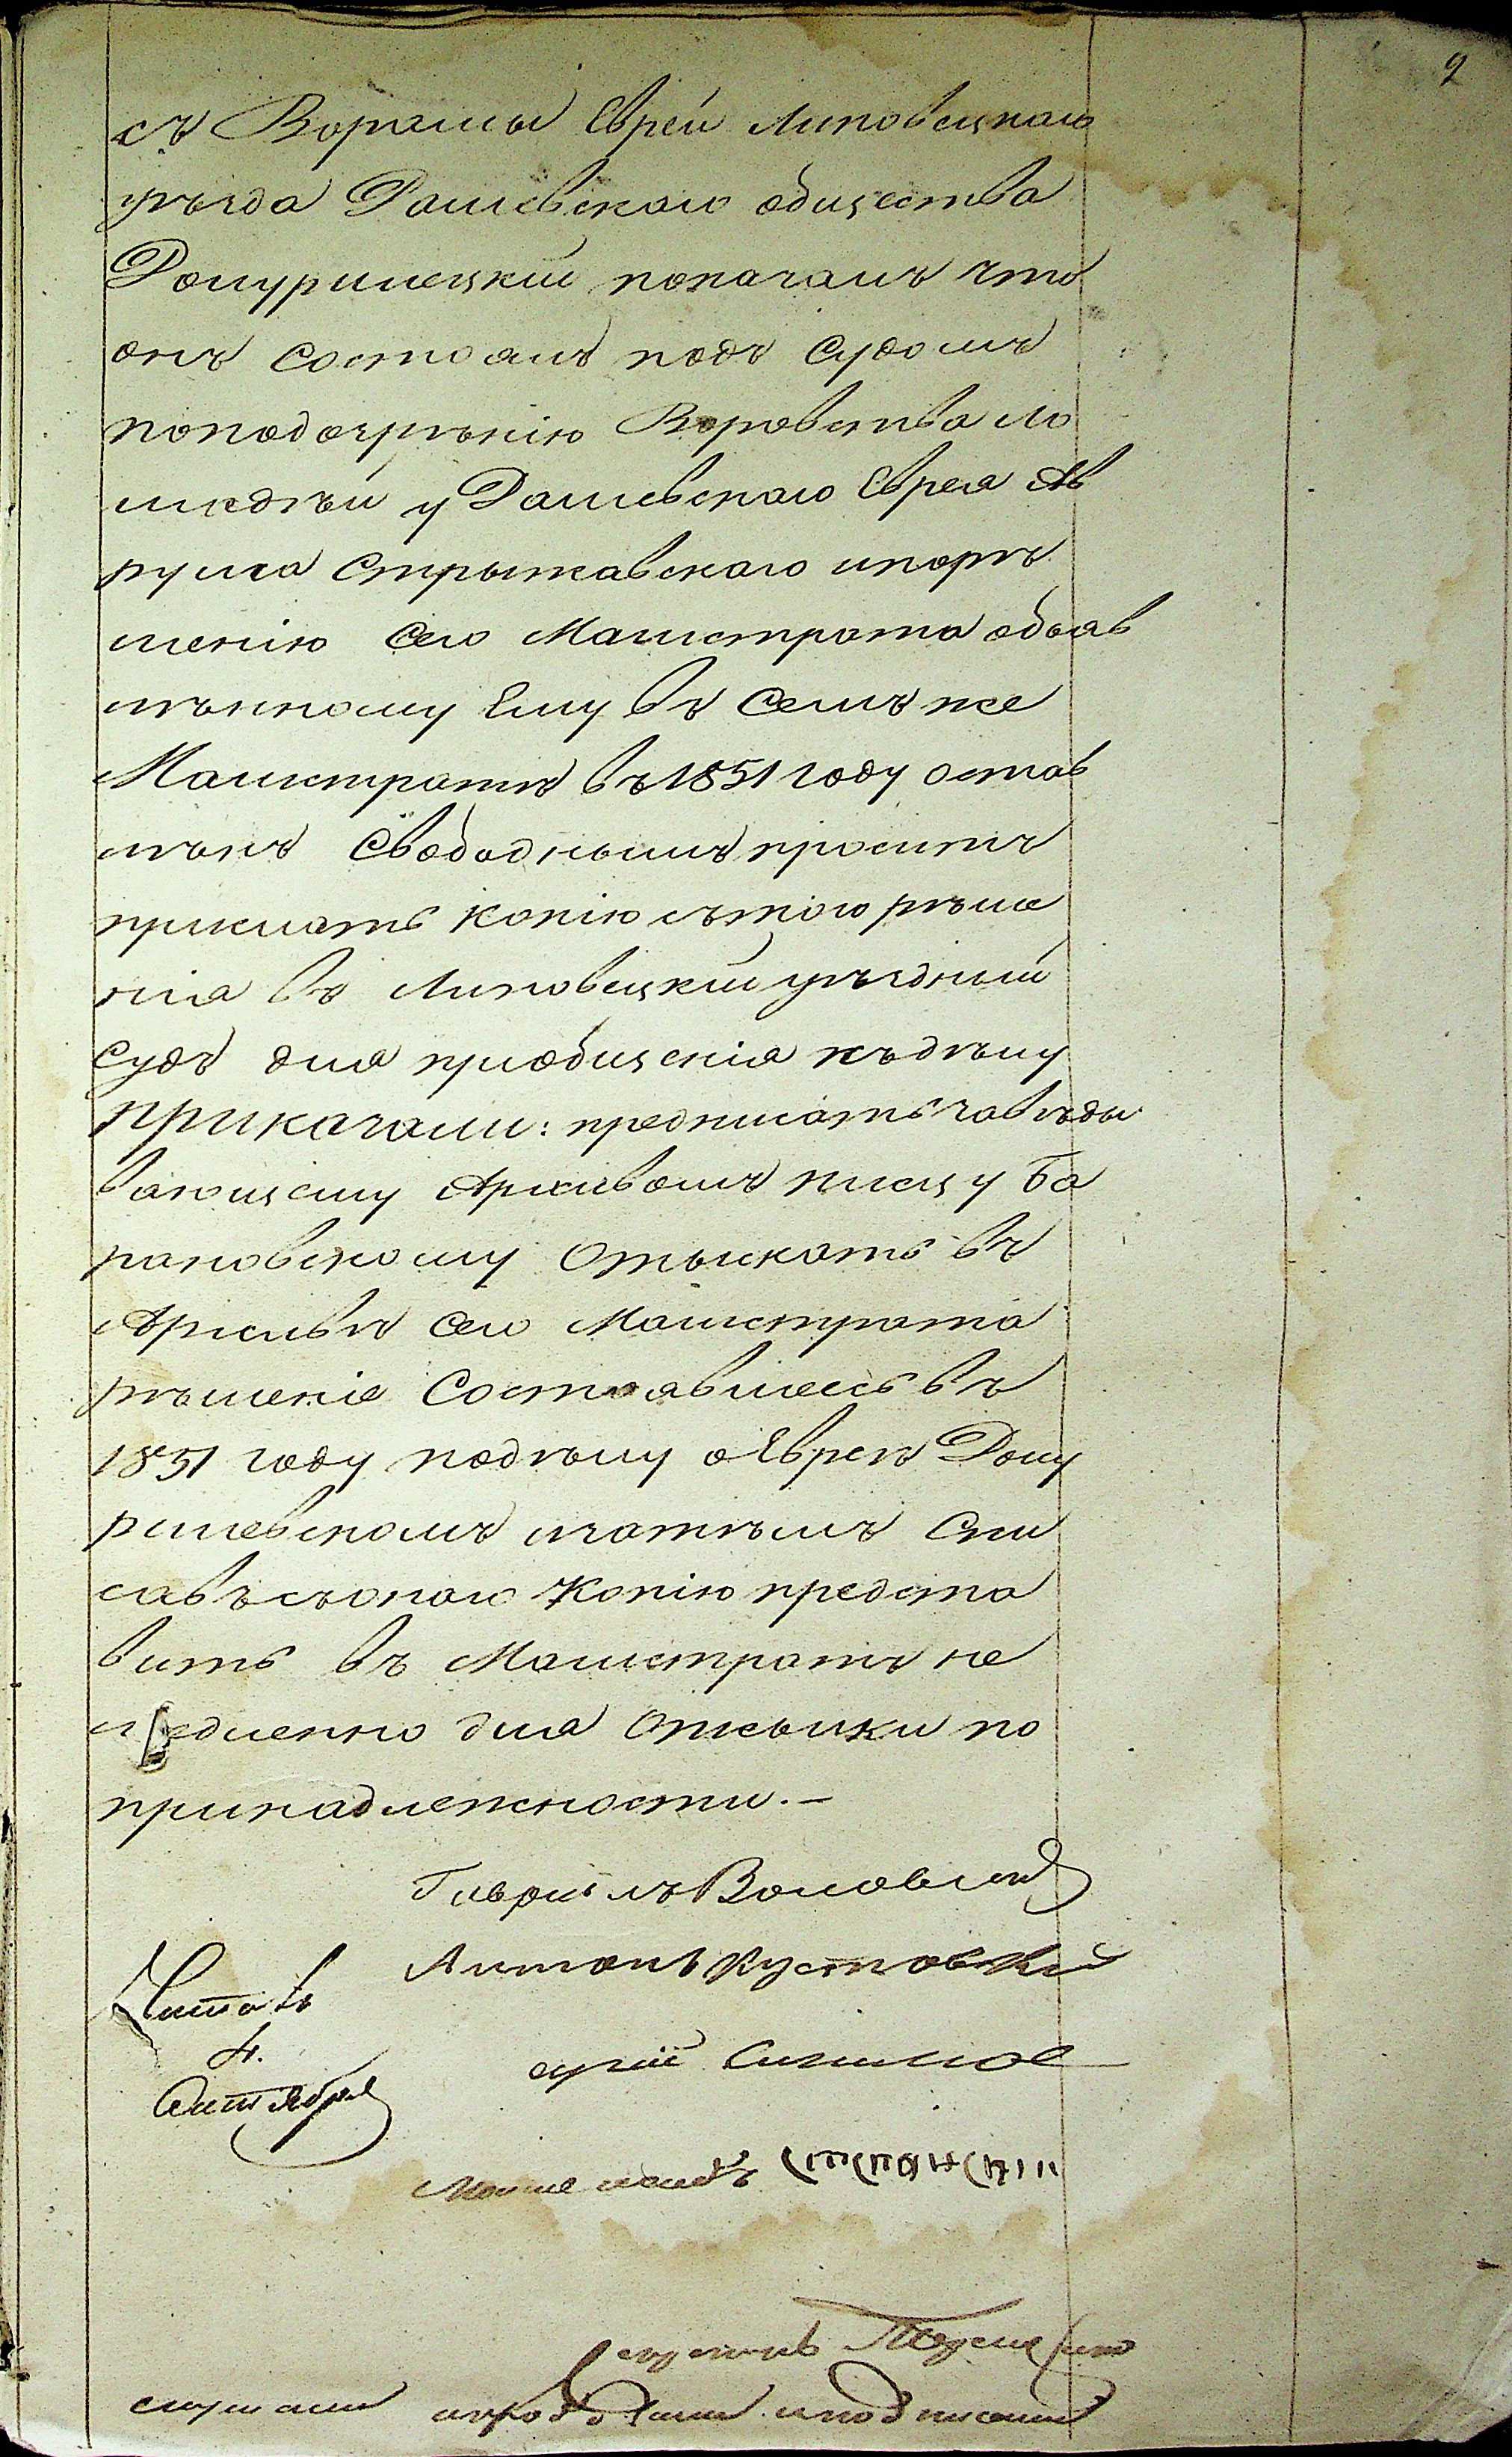 2
съ Ворамы Еврей Липовецкаго
уѣзда Дашевскаго общества
Домуршецкій показалъ что
онъ состоялъ подъ судомъ
поподозрѣнію Воровства ло
шадѣй у Дашевскаго Еврея Ав
рума Стрыжавскаго ипорѣ
шенію сего Магистрата объяв
лѣнному Ему въ семъ же
Магистратѣ въ 1851 году остав
лѣнъ свободнымъ проситъ
прислать копію сътого рѣше
нія въ Липовецкій уѣздный
судъ для пріобщенія къдѣлу
приказали: предписать завѣды
вающему Архивомъ писцу Ба
рановскому Отыскать въ
Архивѣ сего Магистрата
рѣшеніе состоявшеесь въ
1851 году подѣлу оЕвреѣ Дому
ршевскомъ изатѣмъ спи
савъ съонаго копію предста
вить въ Магистратъ не
медленно для Отсылки по
принадлежности.–
Гавріилъ
Антонъ Кустовскій
Читалъ
4.
Октября
слушали